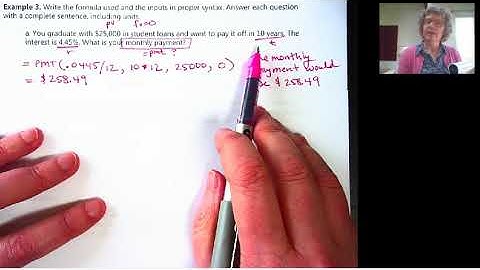 Example 3. Write the formula used and the inputs in proper syntax. Answer each question
with a complete sentence, including units.
pv fv=0
a. You graduate with $25,000 in student loans and want to pay it off in 10 years. The
interest is 4.45%. What is your monthly payment?
r =pmt ? t
= PMT(.0445/12, 10*12, 25000, 0)
= $258.49
monthly
payment would
$258.49